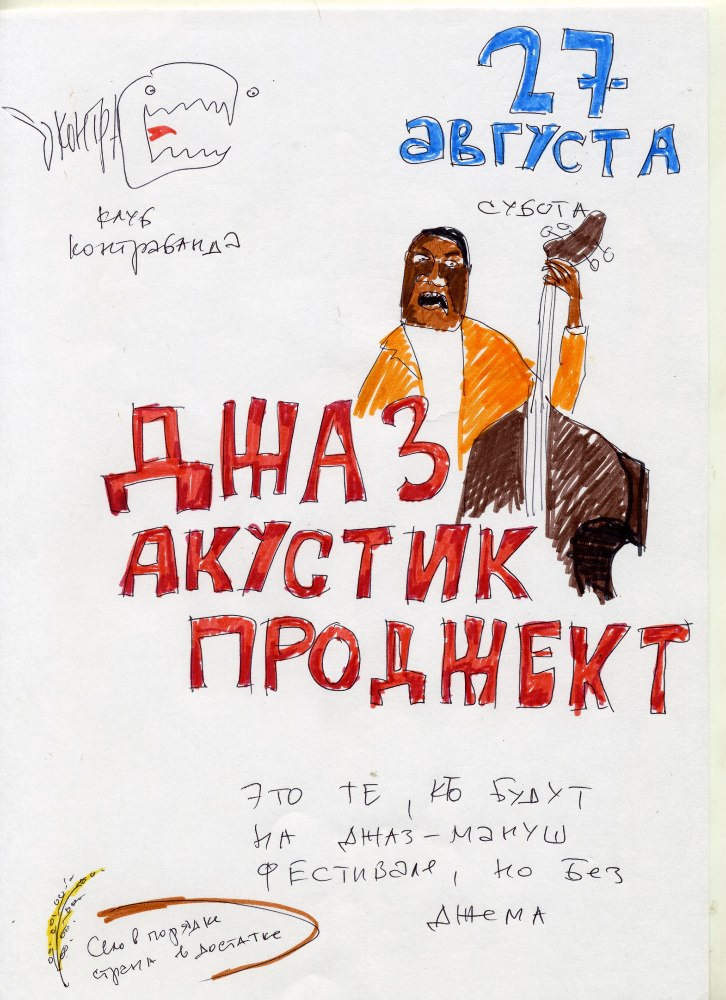 КОНТРА
клуб
контрабанда
27
августа
субота
ДЖАЗ
АКУСТИК
ПРОДЖЕКТ
это те, кто будут
на джаз-мануш
фестивале, но без
джема
Село в порядке
страна в достатке